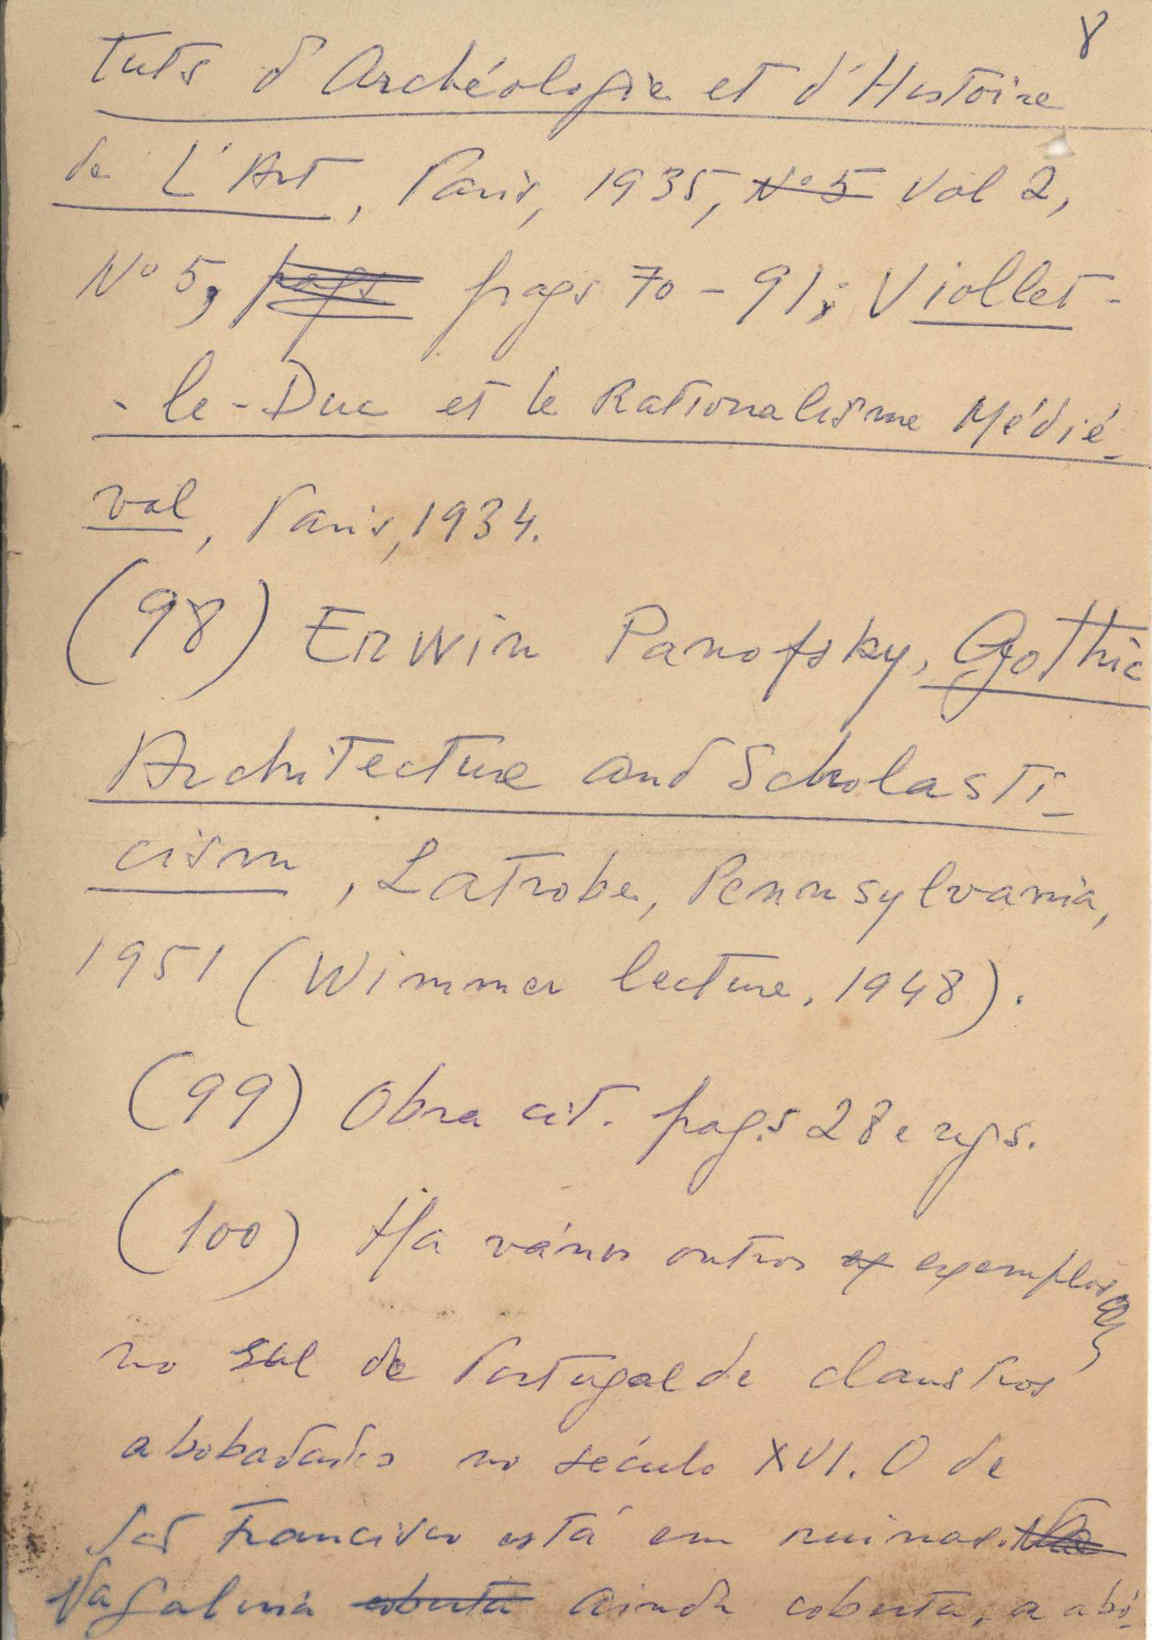 8
tuts d'Archéologie et d'Histoire
de L'Art, Paris, 1935, Nº 5 Vol 2,
Nº 5, pags pags 70-91; Viollet-
-le-Duc et le Rationalisme Médié-
val, Paris, 1934.
(98) Erwin Panofsky, Gothic
Architecture and Scholasti-
cism, Latrobe, Pennsylvania,
1951 (Wimmer lecture, 1948).
(99) Obra cit. pags 28 e segs.
(100) Ha vários outros ex exemplos,
no sul de Portugal de claustros
abobadados no século XVI. O de
São Francisco está em ruinas.
Na galeria coberta ainda coberta, a abó-